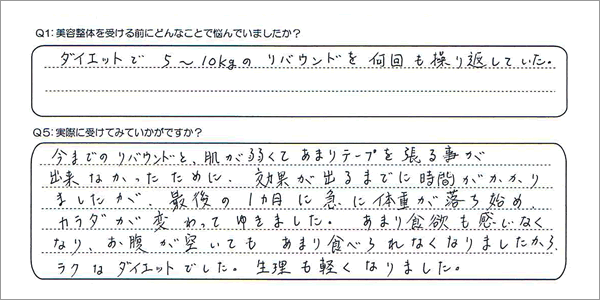 Q1：美容整体を受ける前にどんなことで悩んでいましたか？
ダイエットで 5～10kgの リバウンドを 何回も繰り返していた。
Q5：実際に受けてみていかがですか？
今までの リバウンドと、肌が弱くて あまりテープを 張る事が
出来なかったために、効果が出るまでに時間がかかり
ましたが、最後の1ヵ月に急に体重が落ち始め、
カラダが変わってゆきました。 あまり食欲も感じなく
なり、お腹が空いても あまり食べられなくなりましたから、
ラクなダイエットでした。生理も軽くなりました。